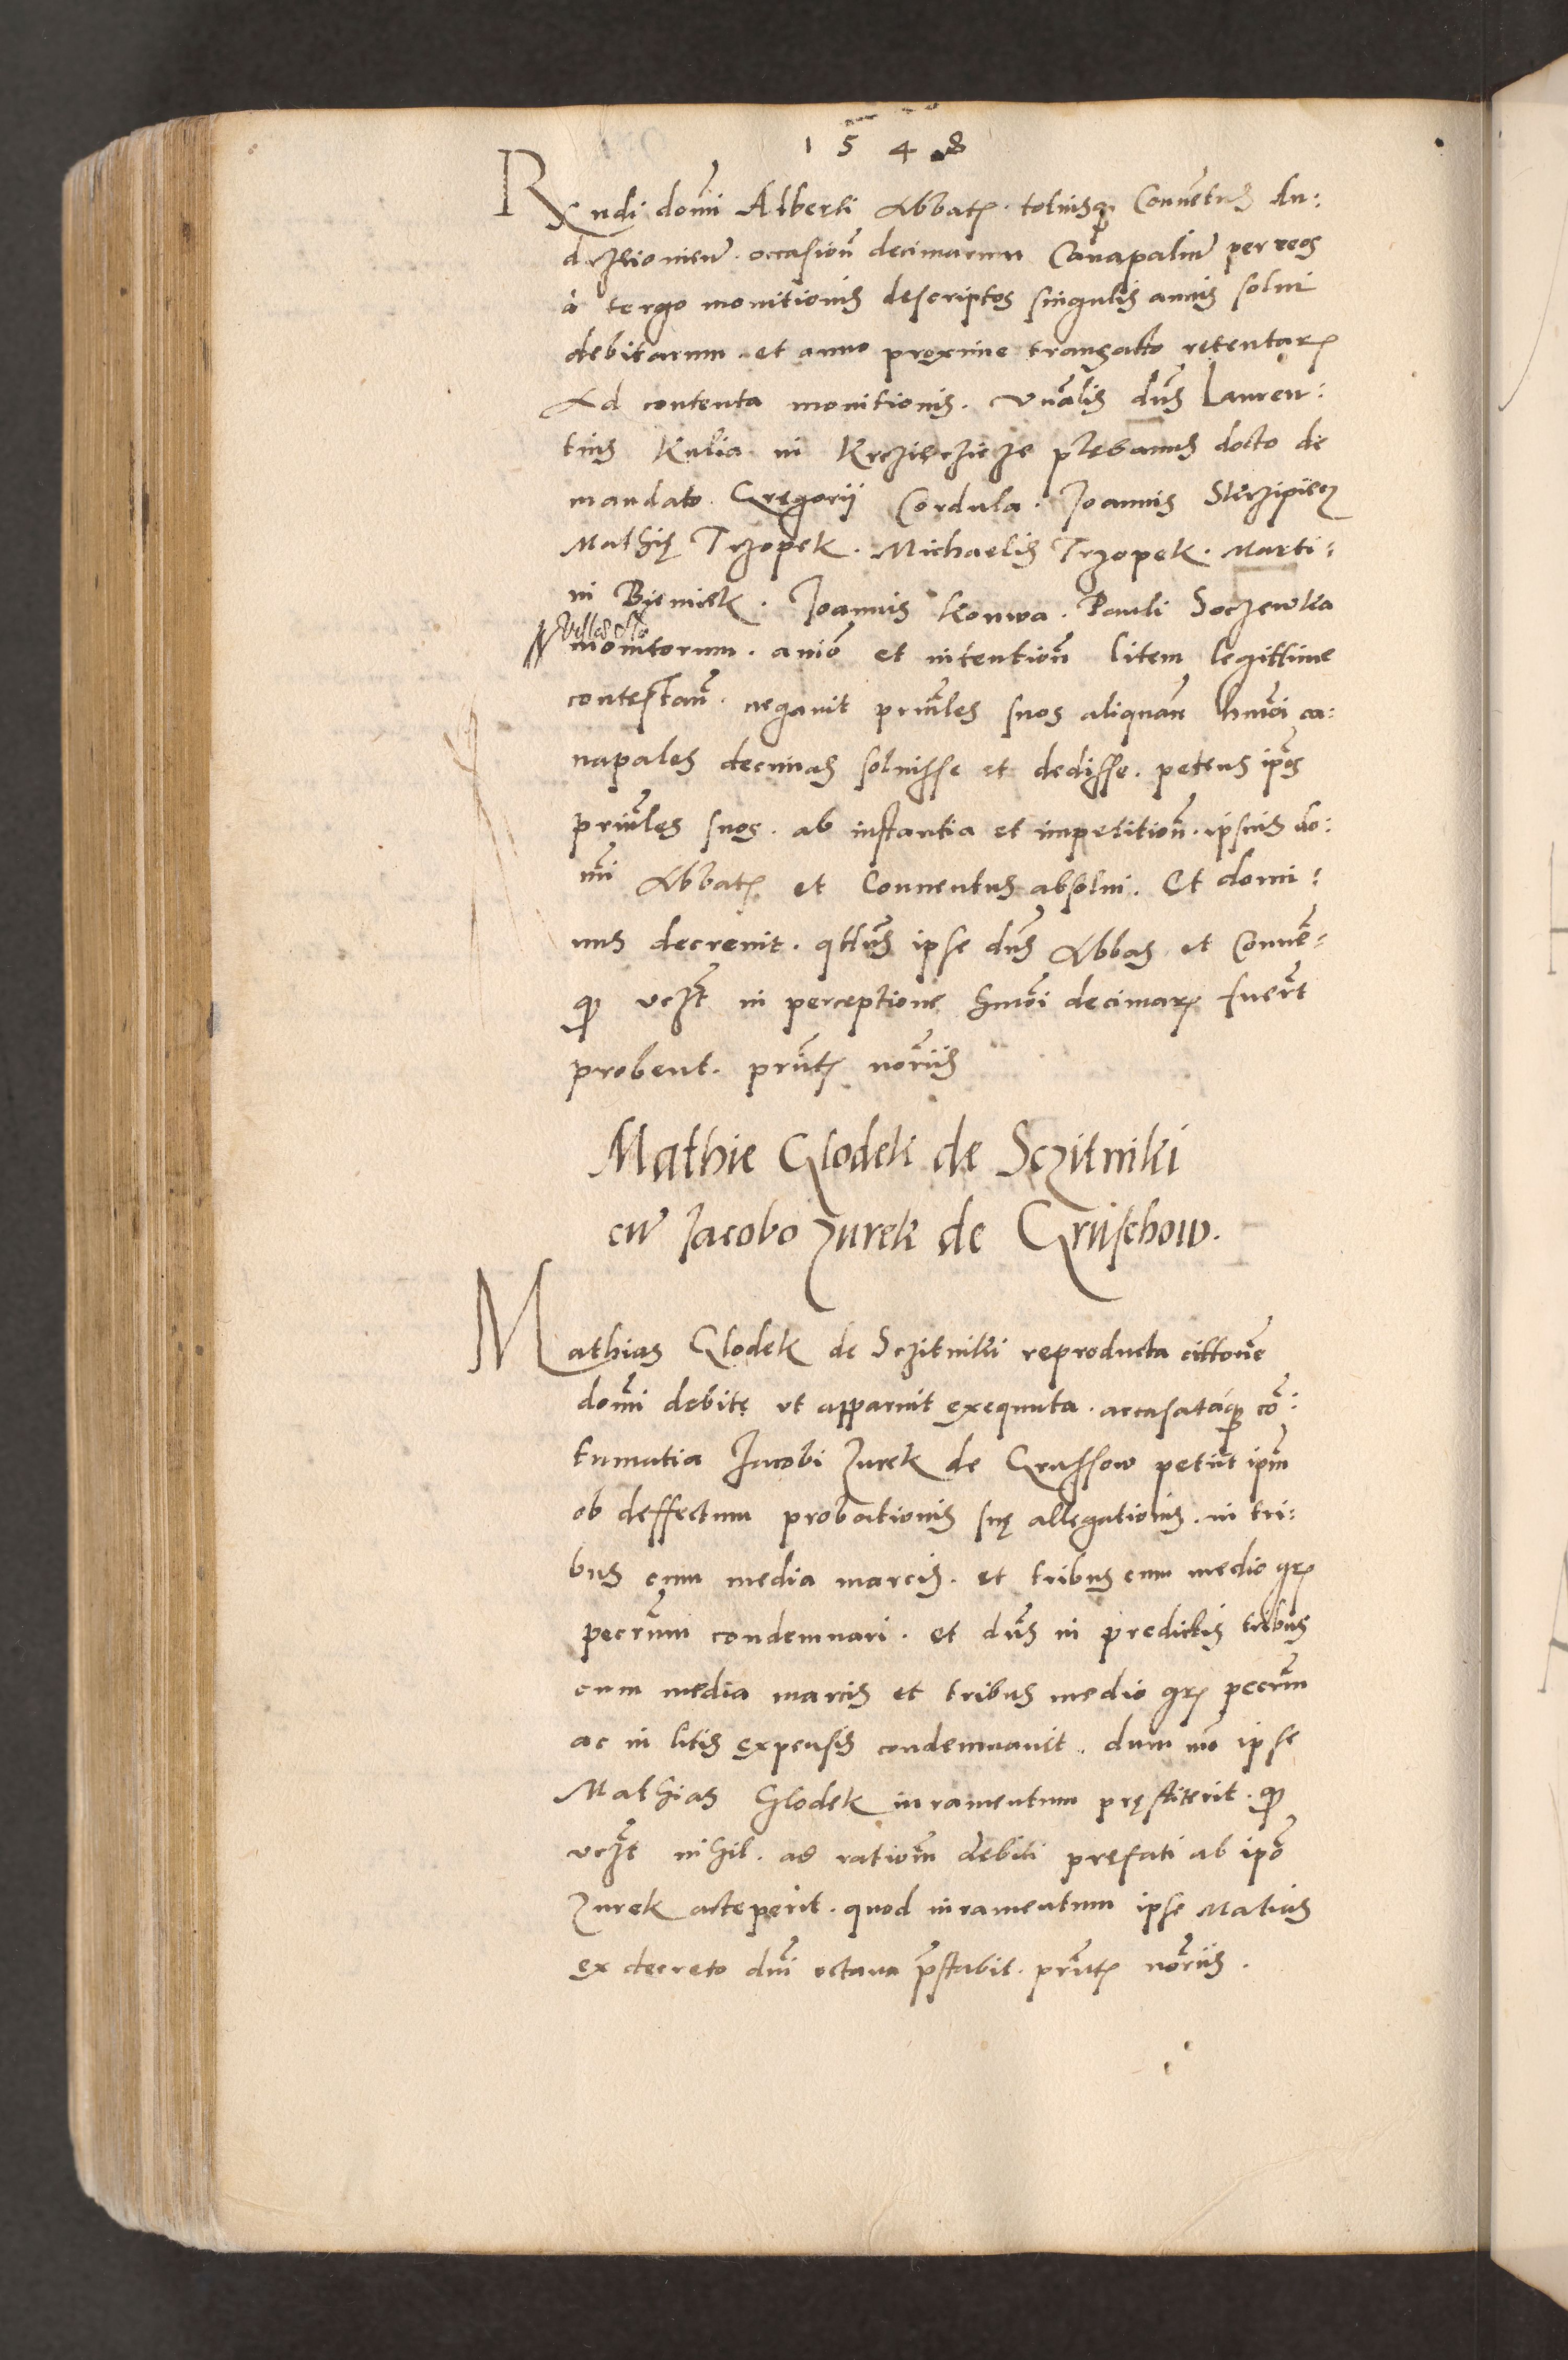 1548
Rndi domi Alberti Abbatis. totiusque Conuentus An:
drzeiouien. occasione decimarum Canapalium per reos
a tergo monitionis descriptos singulis annis solui
debitarum. et anno proxime transacto retentarum
Ad contenta monitionis. Vnalis dns Lauren:
tius Kulia in Krziczicze plebanus docto de
mandato. Gregorii Cordula. Joannis Skrzipiecz
Mathię Trzopek. Michaelis Trzopek. Marti:
ni Bieniek. Joannis Konwa. Pauli Soczewka
monitorum. animo et intentione litem legittime
contestan. negauit prinles suos aliquam hmoi ca:
napales decimas soluisse et dedisse. petens ipos
prinles suos. ab instantia et impetitione. ipsius do:
mni Abbatis et Conuentus absolui. Et domi:
nus decreuit. qtus ipse dns Abbas et Conuen:
quod vczt in perceptione hmoi decimarum fuert
probent. prntibus noriis
Mathie Glodek de Sczitniki
cum Jacobo Zurek de Gruschow.
Mathias Glodek de Sczitniki reproducta cittone
domi debitę vt apparuit exequuta. accusataque con:
tumatia Jacobi Zurek de Grussow petiit ipm
ob deffectum probationis suę allegationis. in tri:
bus cum media marcis. et tribus cum medio gr
pecrum condemnari. et dns in predictis tribus
cum media marcis et tribus medio gr pecrum
ac in litis expensis condemnauit. dum mo ipse
Mathias Glodek iuramentum pręstiterit. quod
vczt nihil. ad rationem debiti prefati ab ipo
Zurek acceperit. quod iuramentum ipse Matias
ex decreto dni octaua prstabit. prntibus noriis.